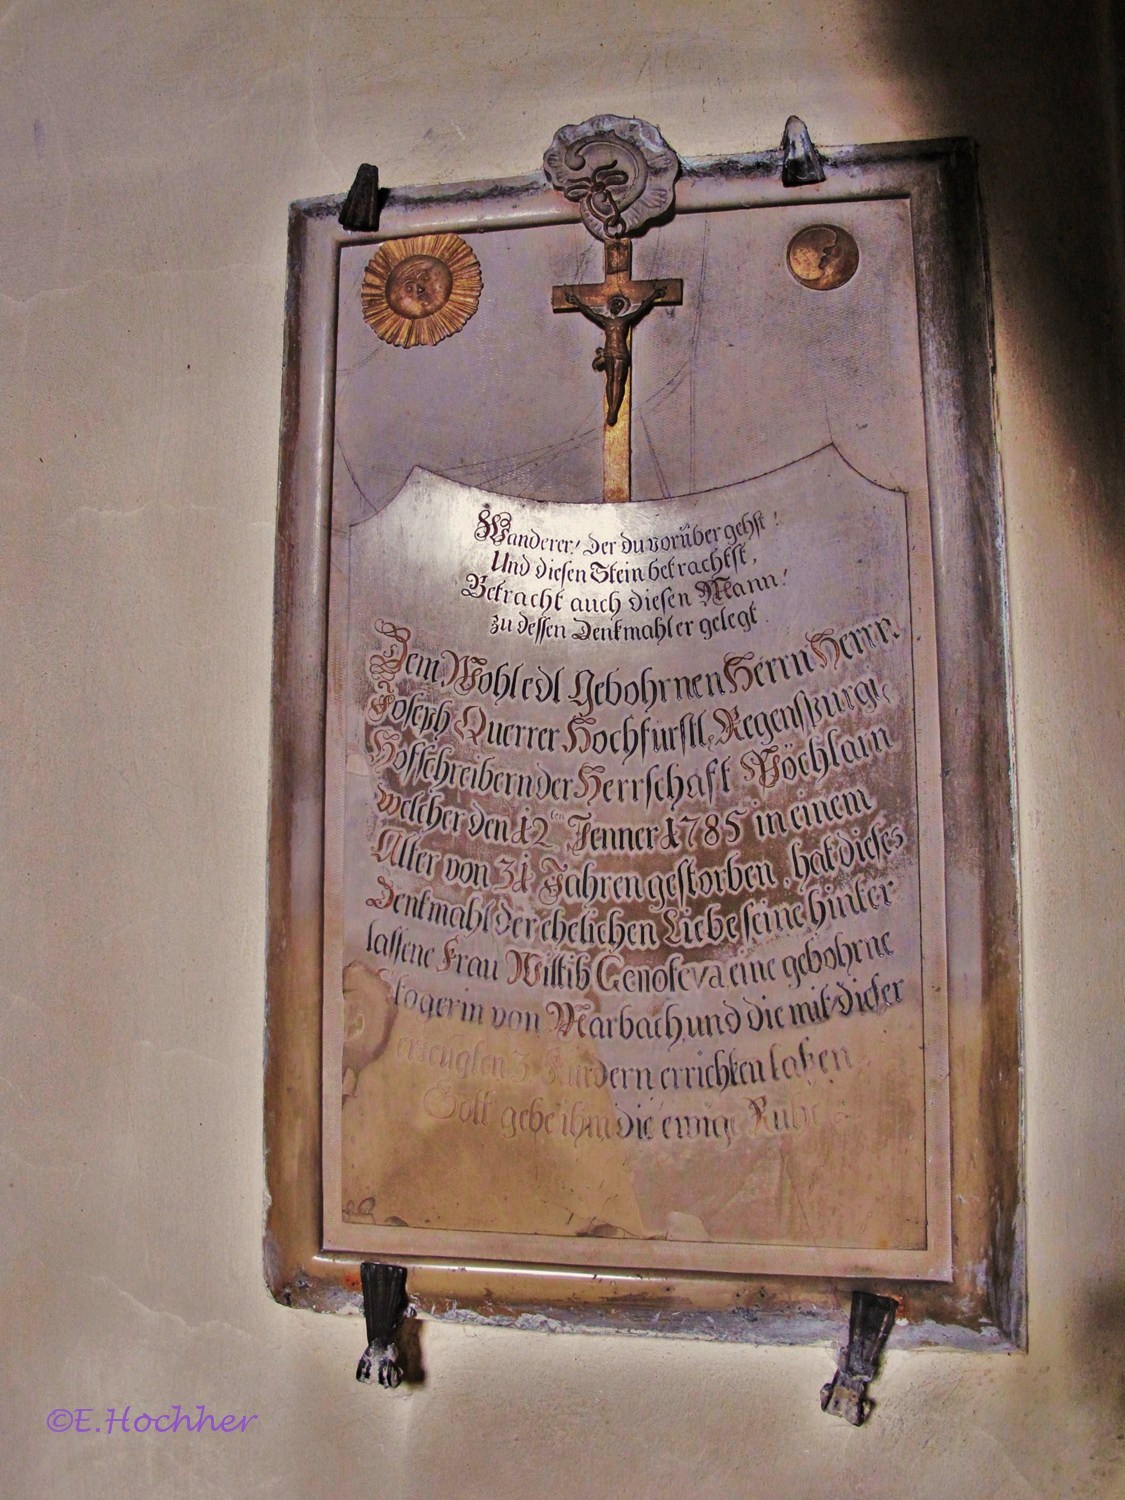 Wanderer! der du vorüber gehst!
Und diesen Stein betrachtst,
Betracht auch diesen Mann!
zu dessen Denkmahl er gelegt.
Dem Wohledl Gebohrnen Herrn Herrn
Joseph Querrer Hochfürstl. Regenspurgi.
Hofschreibern der Herrschaft Pöchlarn
welcher den 12ten Jenner 1785 in einem
Alter von 34 Jahren gestorben, hat dieses
Denkmahl der ehelichen Liebe seine hinter
lassene Frau Wittib Genofeva eine gebohrne
von Marbach, und die mit dieser
erzeugten 3 Kindern errichten laßen
Gott gebe ihm die ewige Ruhe
©E.Hochher